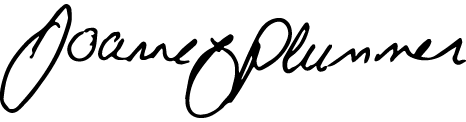 Joanne Plummer